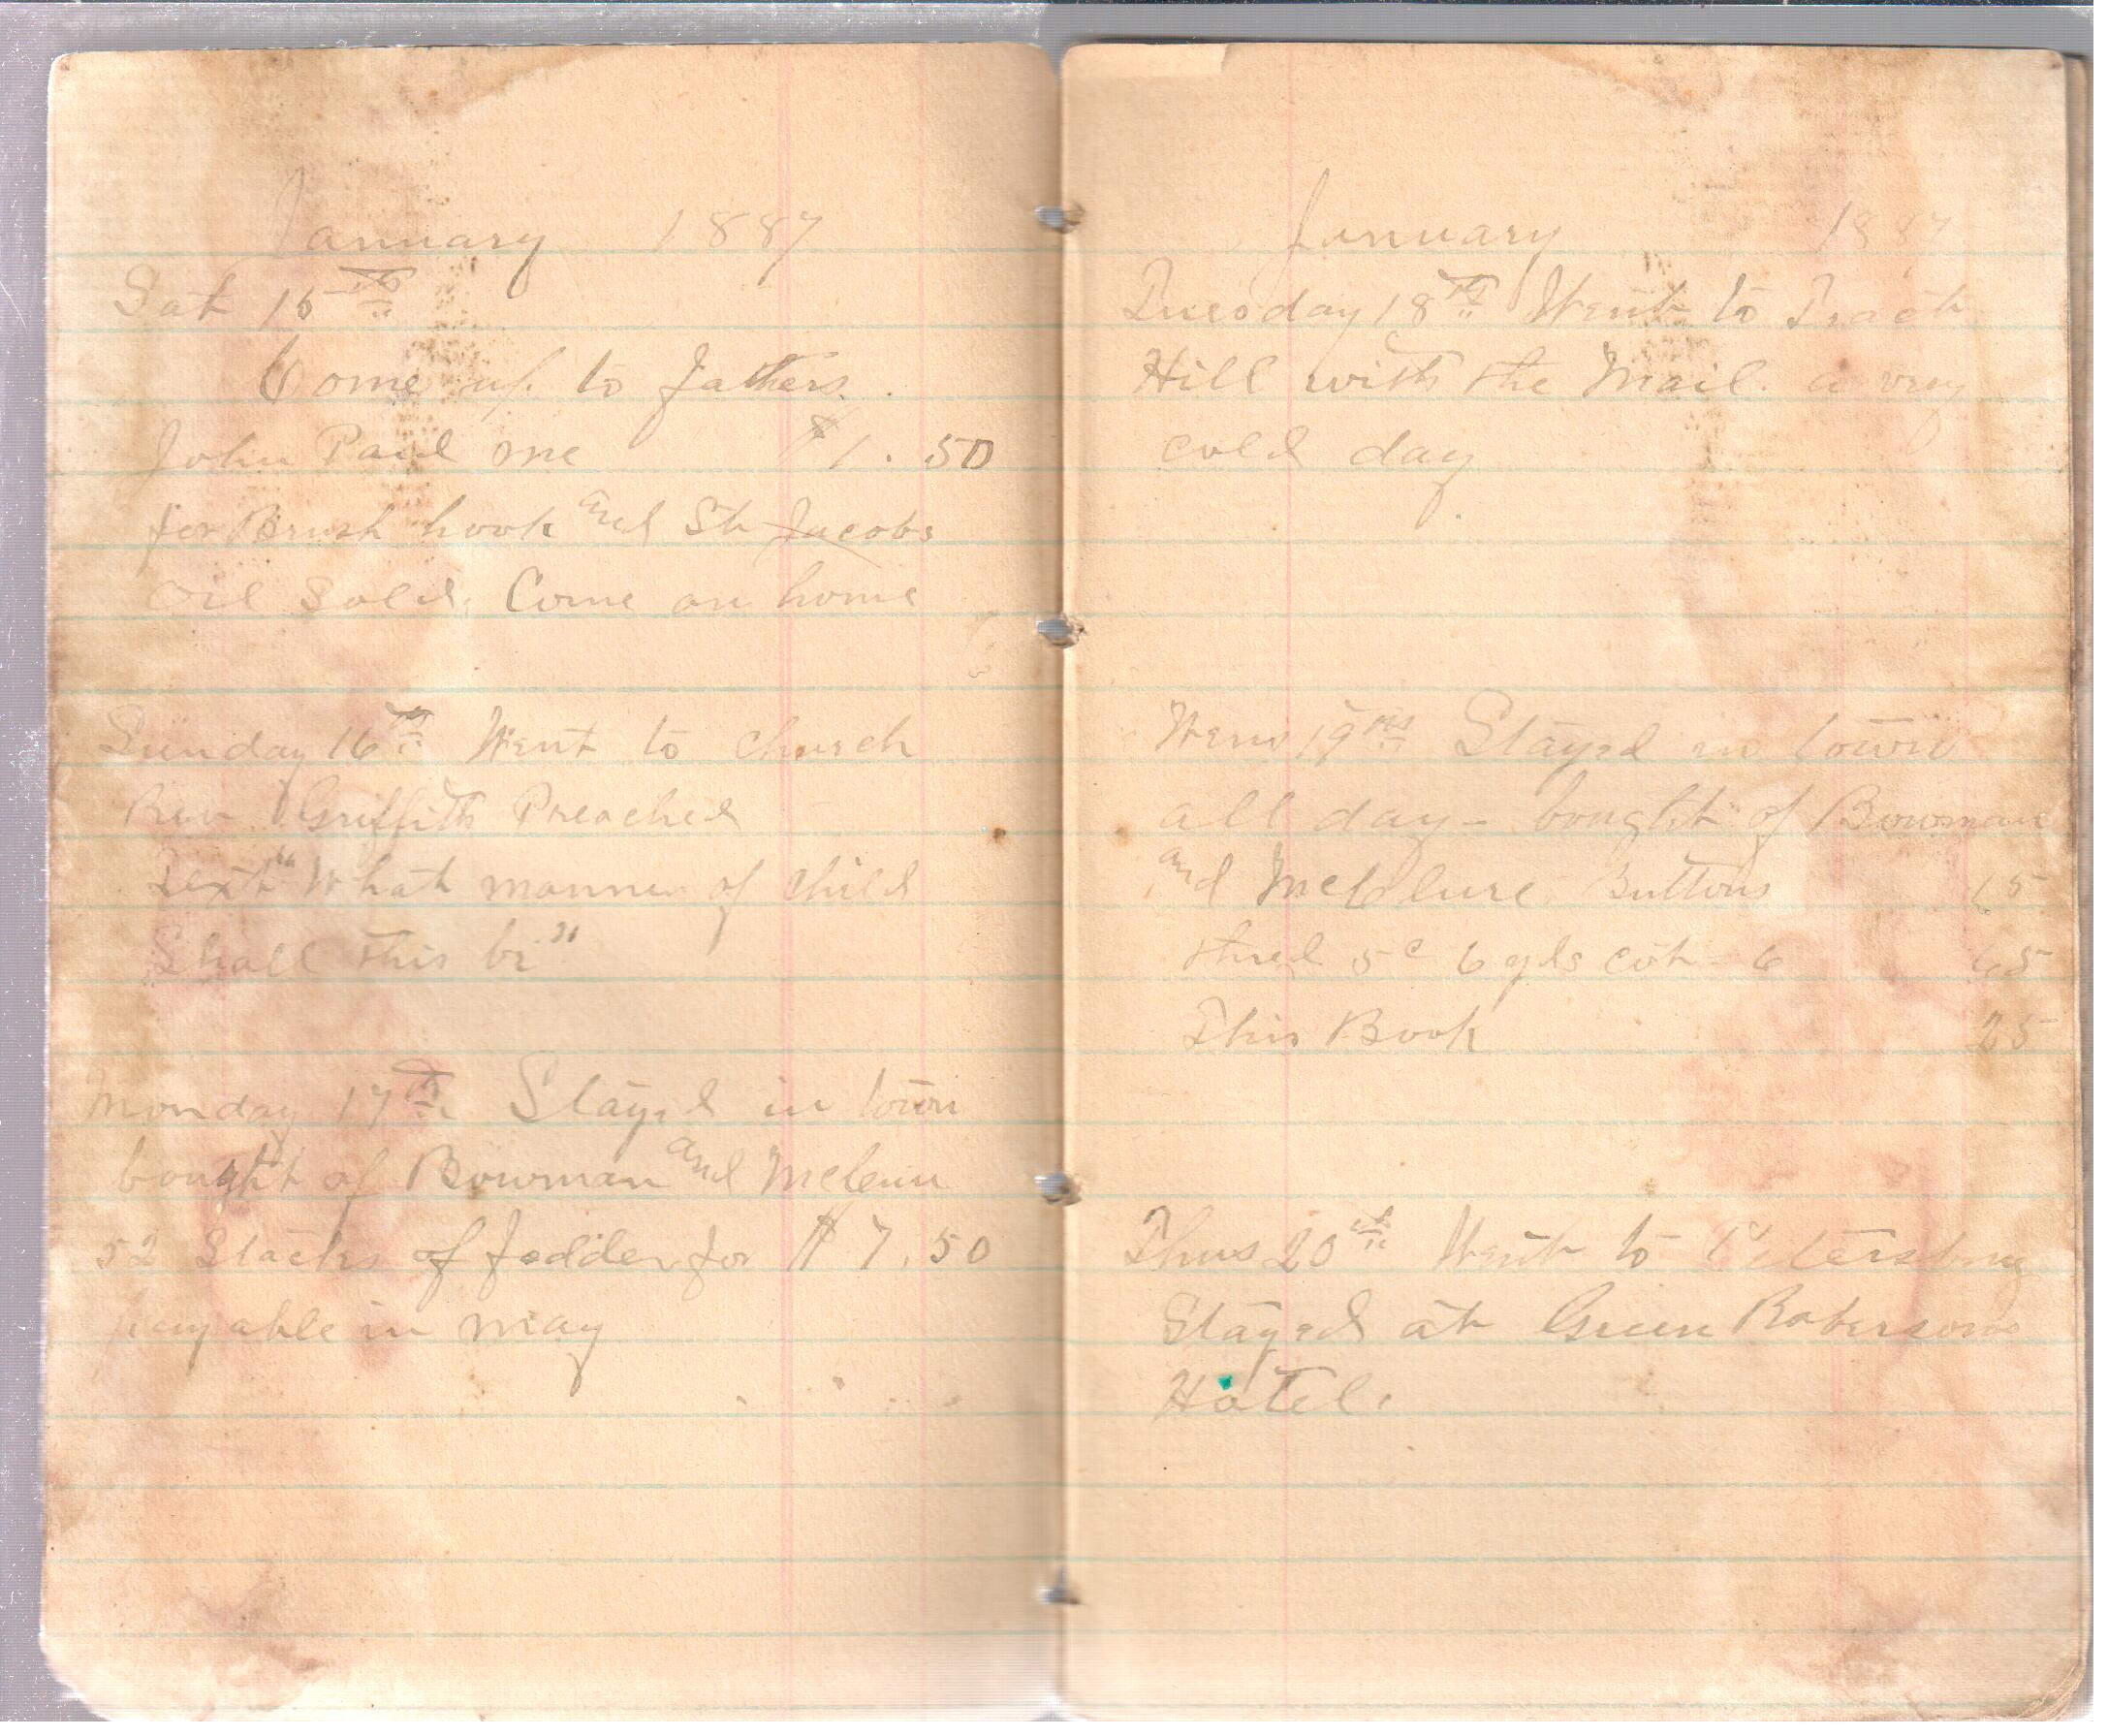 January 1887
Sat 15th
Come up to fathers.
John Paid me $1.50
for Brush hook and St Jacobs
oil Sold. Come on home
Sunday 16th Went to church
Rev Griffith Preached
Text "What manner of child
Shall this be"
Monday 17th Stayed in town
bought of Bowman and
52 Stacks of fodder for $7.50
payable in may
January 1887
Tuesday 18th Went to
Hill with the Mail. a very
cold day
19th Stayed in town
all day - bought of Bowman
and McClure Buttons 15
thred 5c 6 yds cot - 6 65
This Book 25
Thurs 20th Went to Petersburg
Stayed at Green Robersons
Hotel.